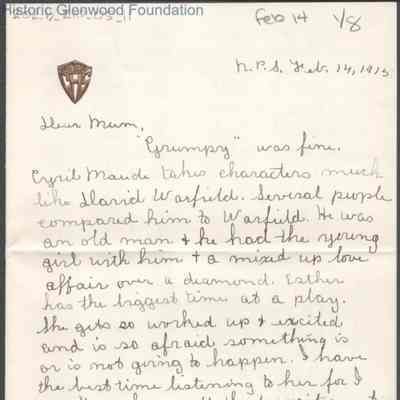 Historic Glenwood Foundation
Feb 14 1/8
N.P.S. Feb. 14, 1915.
Dear Mum,
"Grumpy" was fine.
Cyril Maude takes characters much
like David Warfield. Several people
compared him to Warfield. He was
an old man & he had the young
girl with him & a mixed up love
affair over a diamond. Esther
has the biggest time at a play.
She gets so worked up & excited
and is so afraid something is
or is not going to happen. I have
the best time listening to her for I